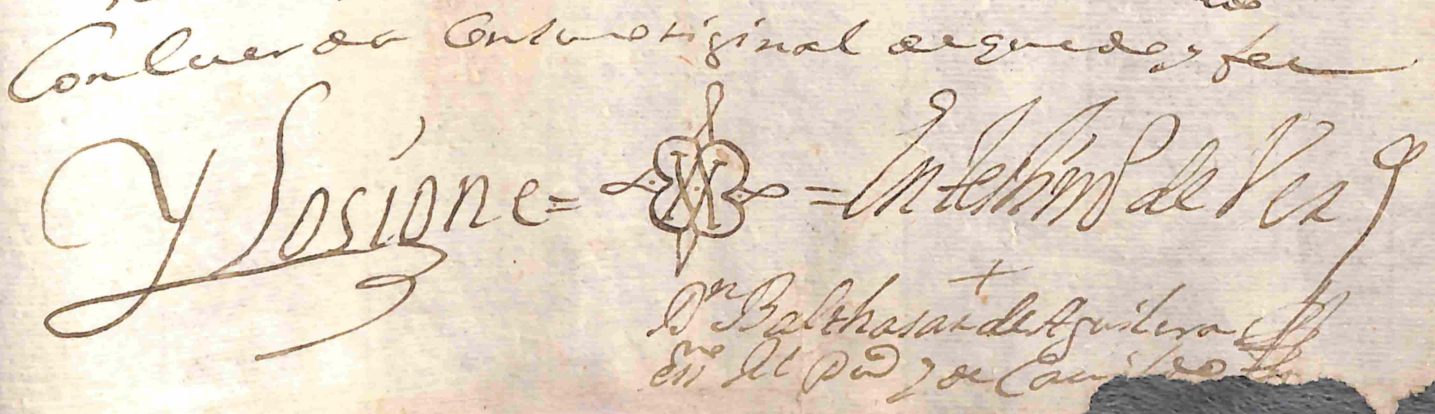 Concuerda con su original de que doy fee
Y Lo signe = = En testimo de Verd
Dn Balthasar de Aguilera
Esno del puco y de Cavildo